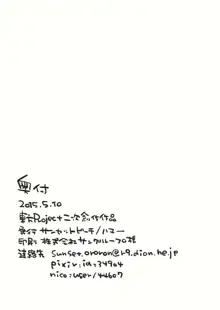 奥付
2015.5.10
東方Project二次創作作品
発行 サンセットピーチ/ハマー
印刷 株式会社サングループ様
連絡先 sunset.ororon@r9.dion.ne.jp
pixiv:id:34904
nico:user/44607